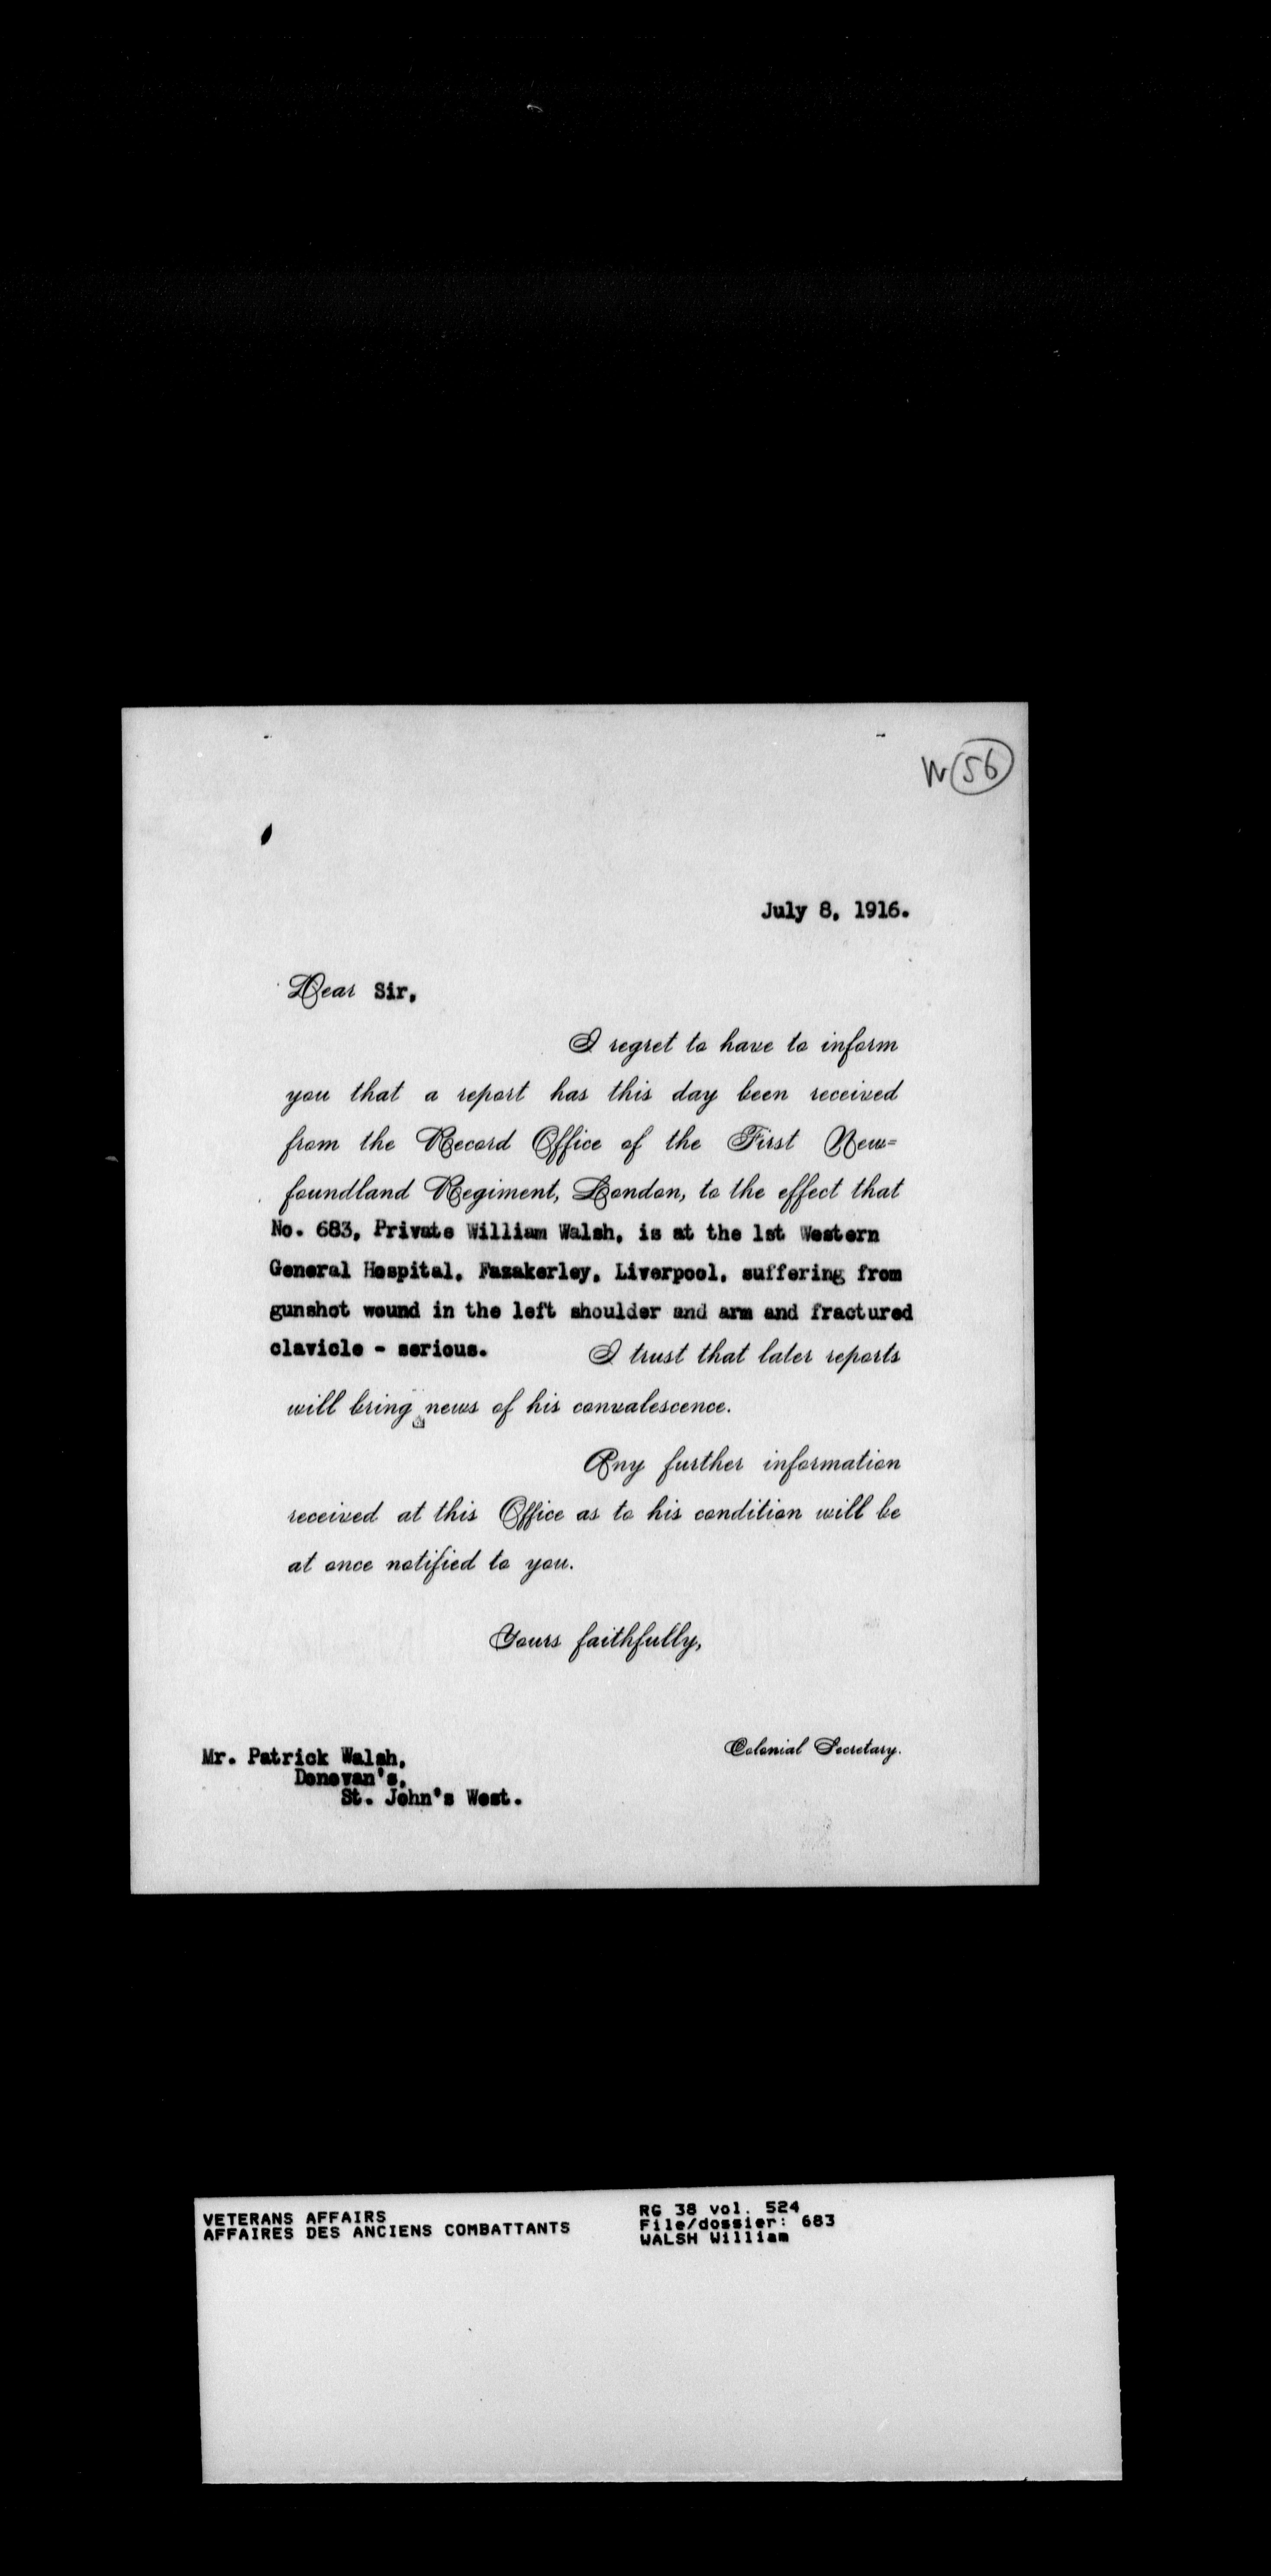 W 56
July 8, 1916.
Dear Sir,
I regret to have to inform
you that a report has this day been received
from the Record Office of the First New=
foundland Regiment, London, to the effect that
No. 683, Private William Walsh, is at the 1st Western
General Hospital, Fazakerley, Liverpool, suffering from
gunshot wound in the left shoulder and arm and fractured
clavicle - serious. I trust that later reports
will bring news of his convalescence.
Any further information
received at this Office as to his condition will be
at once notified to you.
Yours faithfully,
Colonial Secretary.
Mr. Patrick Walsh,
Donovan's,
St. John's West.
VETERANS AFFAIRS
AFFAIRES DES ANCIENS COMBATTANTS
RG 38 vol. 524
File/dossier: 683
WALSH William